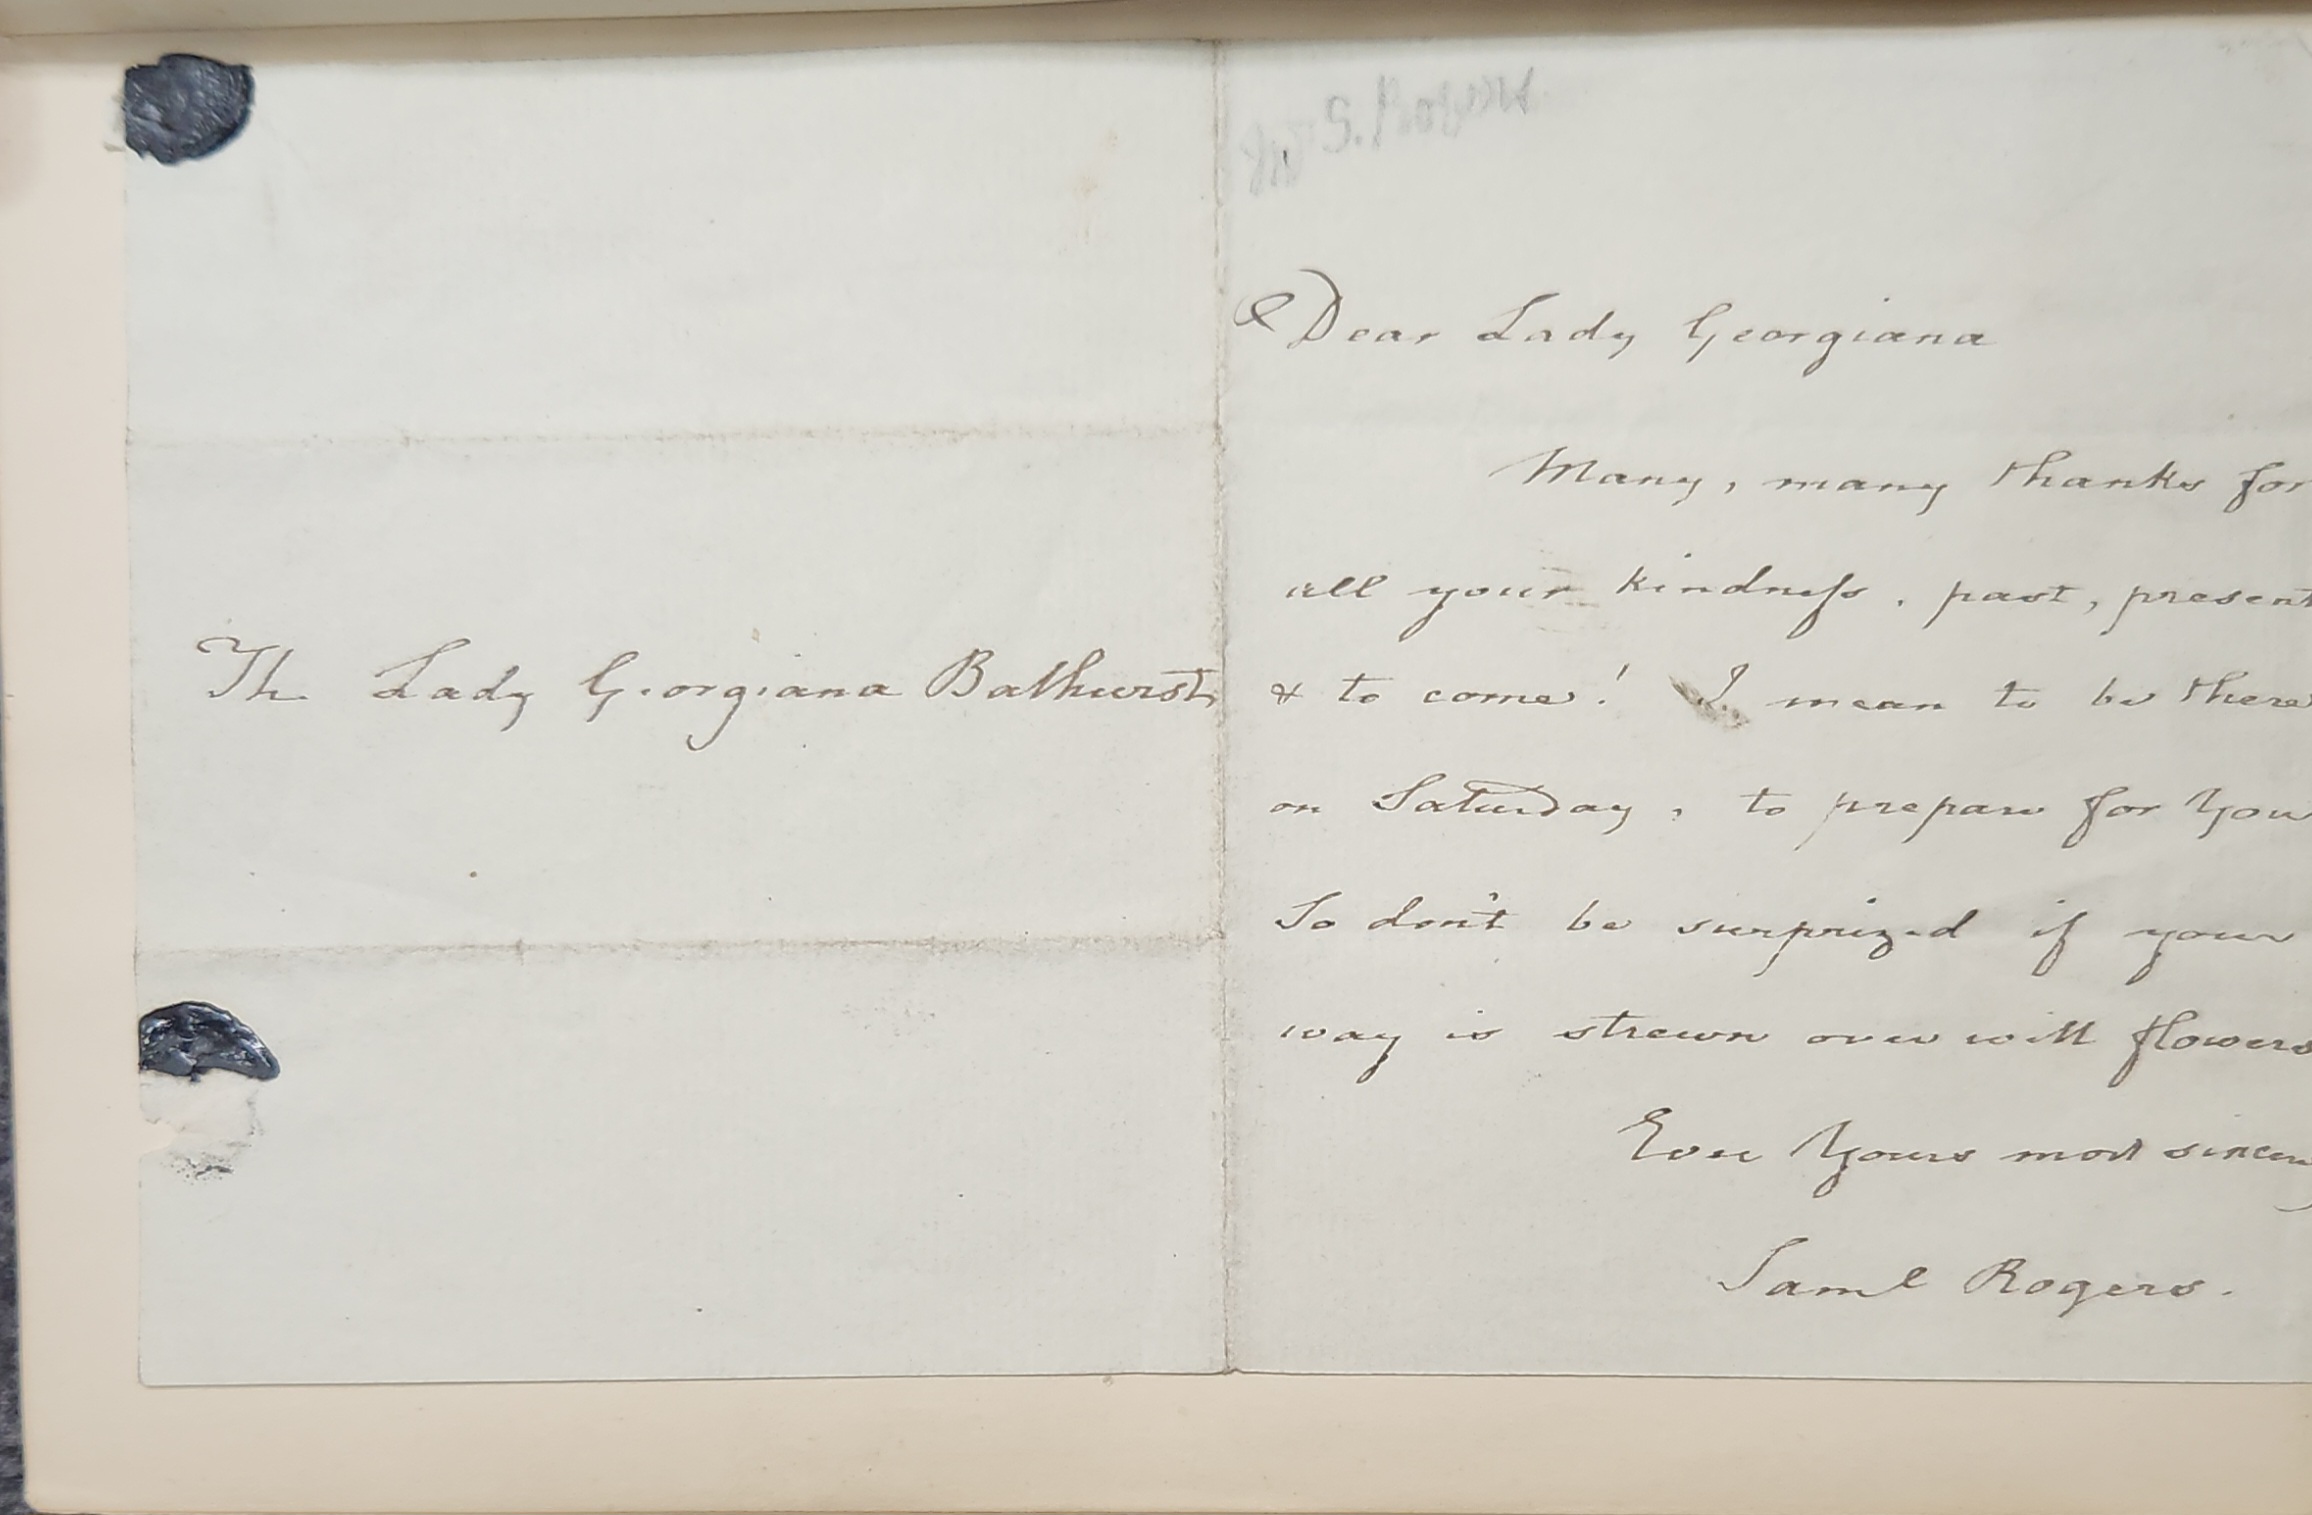 The Lady Georgiana Bathurst
Mr S. Rogers
Dear Lady Georgiana
Many, many thanks for
all your kindness, past, present
& to come! I mean to be there
on Saturday, to prepare for You
So don't be surprized if your
way is strewn over with flowers
Ever Yours most
Saml Rogers.